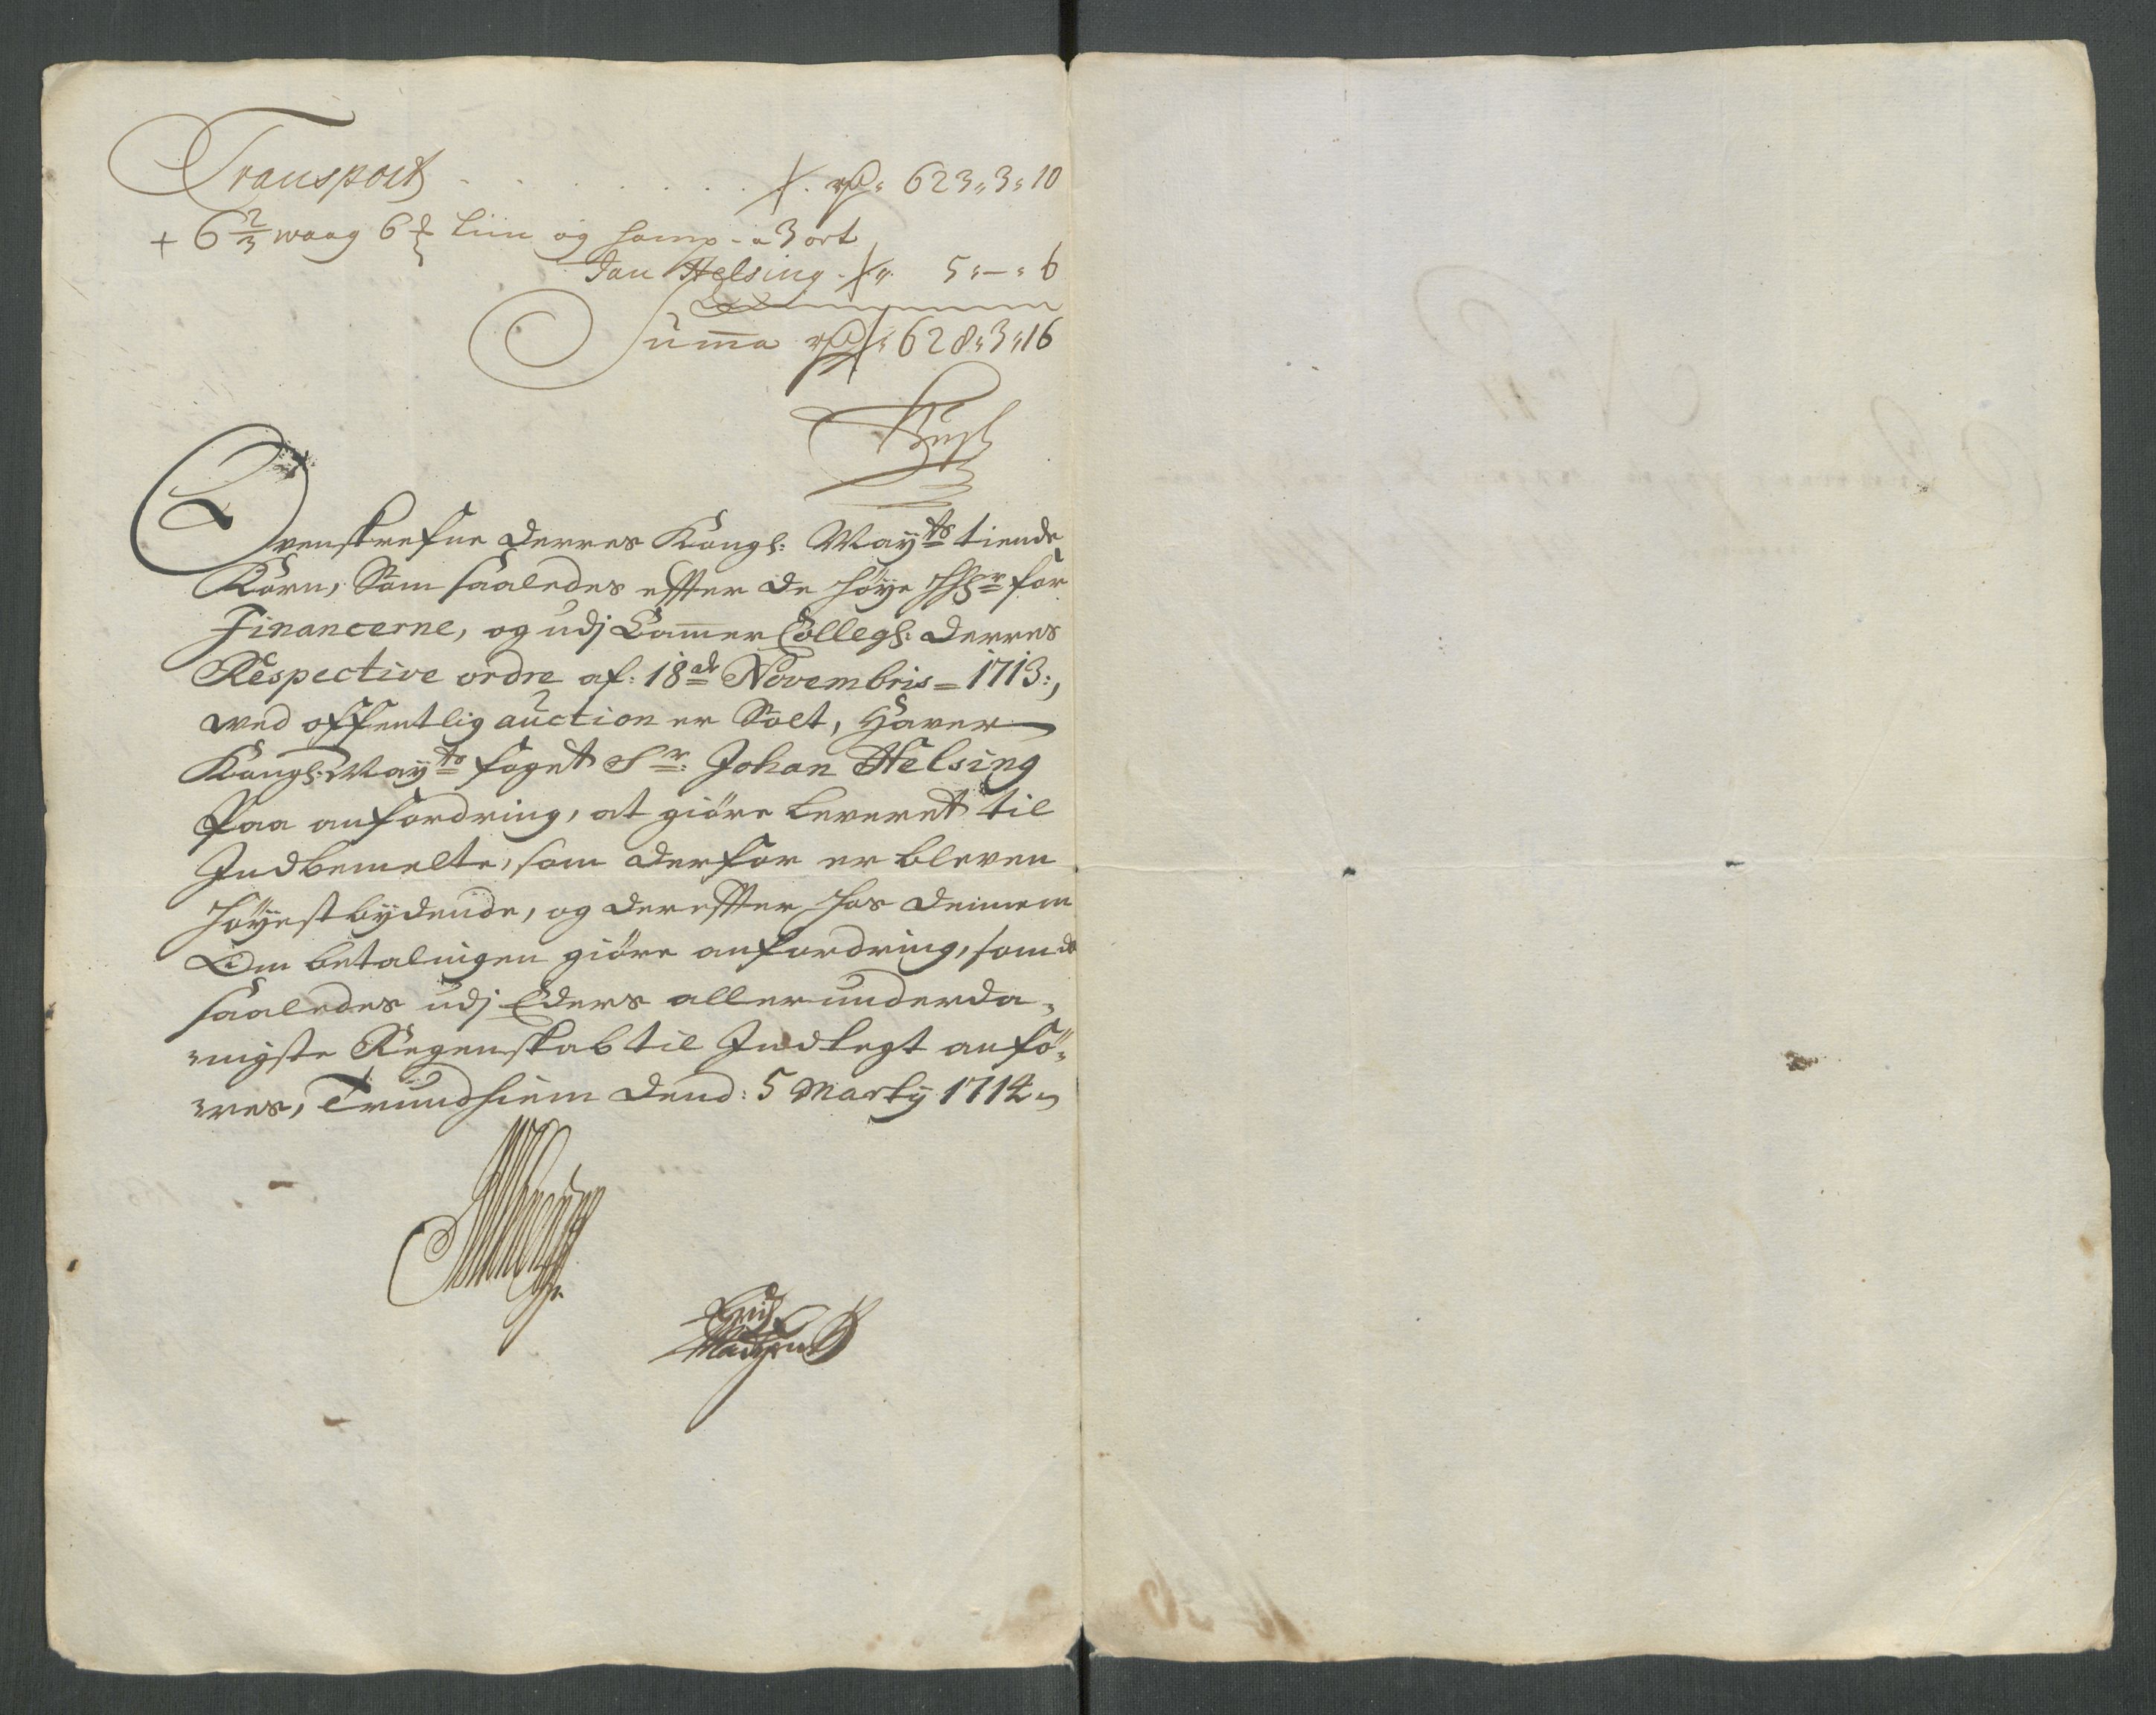 Transport . . . . . . . rd: 623: 3: 10
+ 6 2/3 waag 6 ℔ Liin og hamp - a 3 ort
Jan Helsing - 5: - : 6
Summa rd: 628: 3: 16
Busch
Ovenskrefne Derres Kongl: Mayts tiende
Korn, Som saaledes effter de høye HHr for
Financerne, og udj Cammer Collegh: derres
Respective ordre af: 18de Novembris = 1713:,
wed offentlig auction er Solt, Haver
Kongl: Mayts foget Sr: Johan Helsing
Paa anfordring, at giöre Leveret til
Indbemelte, som derfor er bleven
Höyestbydende, og dereffter hos dennem
Om betalingen giöre anfordring, som
saaledes udj Eders allerunderda-
nigste Regenskab til Indtegt anfö-
res, Trundhiem dend: 5 Marty 1714